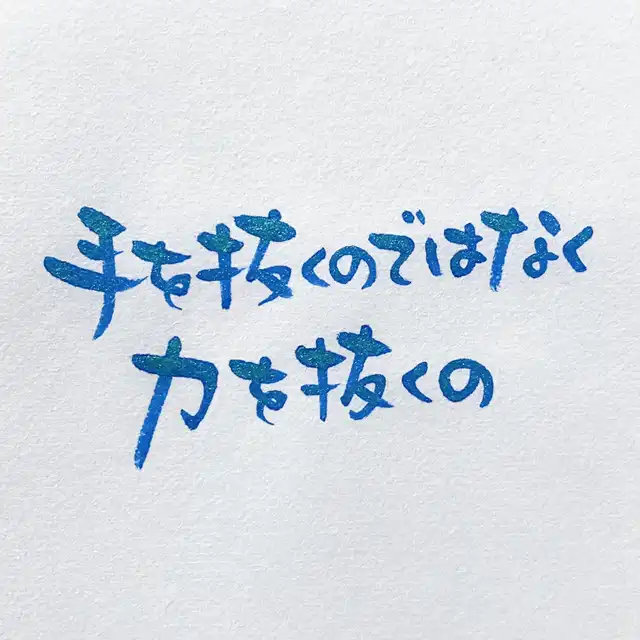 手を抜くのではなく
力を抜くの